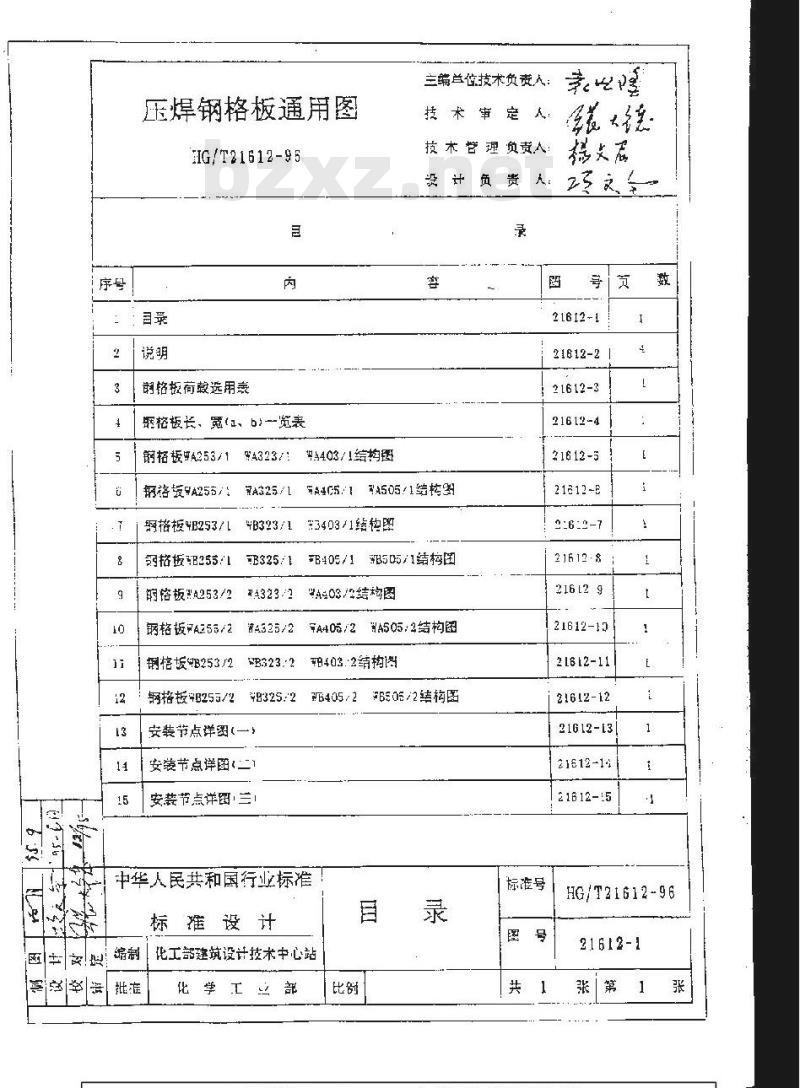 压焊钢格板通用图
HG/T21612-96
主编单位技术负责人:
技术审定人:
技术管理负责人:
设计负责人:
bzxz.net
目录
序号 内容 图号 页数
1 目录 21612-1 1
2 说明 21612-2 4
3 钢格板荷载选用表 21612-3 1
4 钢格板长、宽(a、b)一览表 21612-4
5 钢格板WA253/1 WA323/1 WA403/1结构图 21612-5 1
6 钢格板WA255/1 WA325/1 WA405/1 WA505/1结构图 21612-6 1
7 钢格板WB253/1 WB323/1 WB403/1结构图 21612-7 1
8 钢格板WB255/1 WB325/1 WB405/1 WB505/1结构图 21612-8 1
9 钢格板WA253/2 WA323/2 WA403/2结构图 21612-9 1
10 钢格板WA255/2 WA325/2 WA405/2 WA505/2结构图 21612-10 1
11 钢格板WB253/2 WB323/2 WB403/2结构图 21612-11 1
12 钢格板WB255/2 WB325/2 WB405/2 WB505/2结构图 21612-12 1
13 安装节点详图(一) 21612-13 1
14 安装节点详图(二) 21612-14 1
15 安装节点详图(三) 21612-15 1
制图
设计
校对
审定
中华人民共和国行业标准
标准设计
编制 化工部建筑设计技术中心站
批准 化学工业部 比例
目录
标准号 HG/T21612-96
图号 21612-1
共 1 张 第 1 张